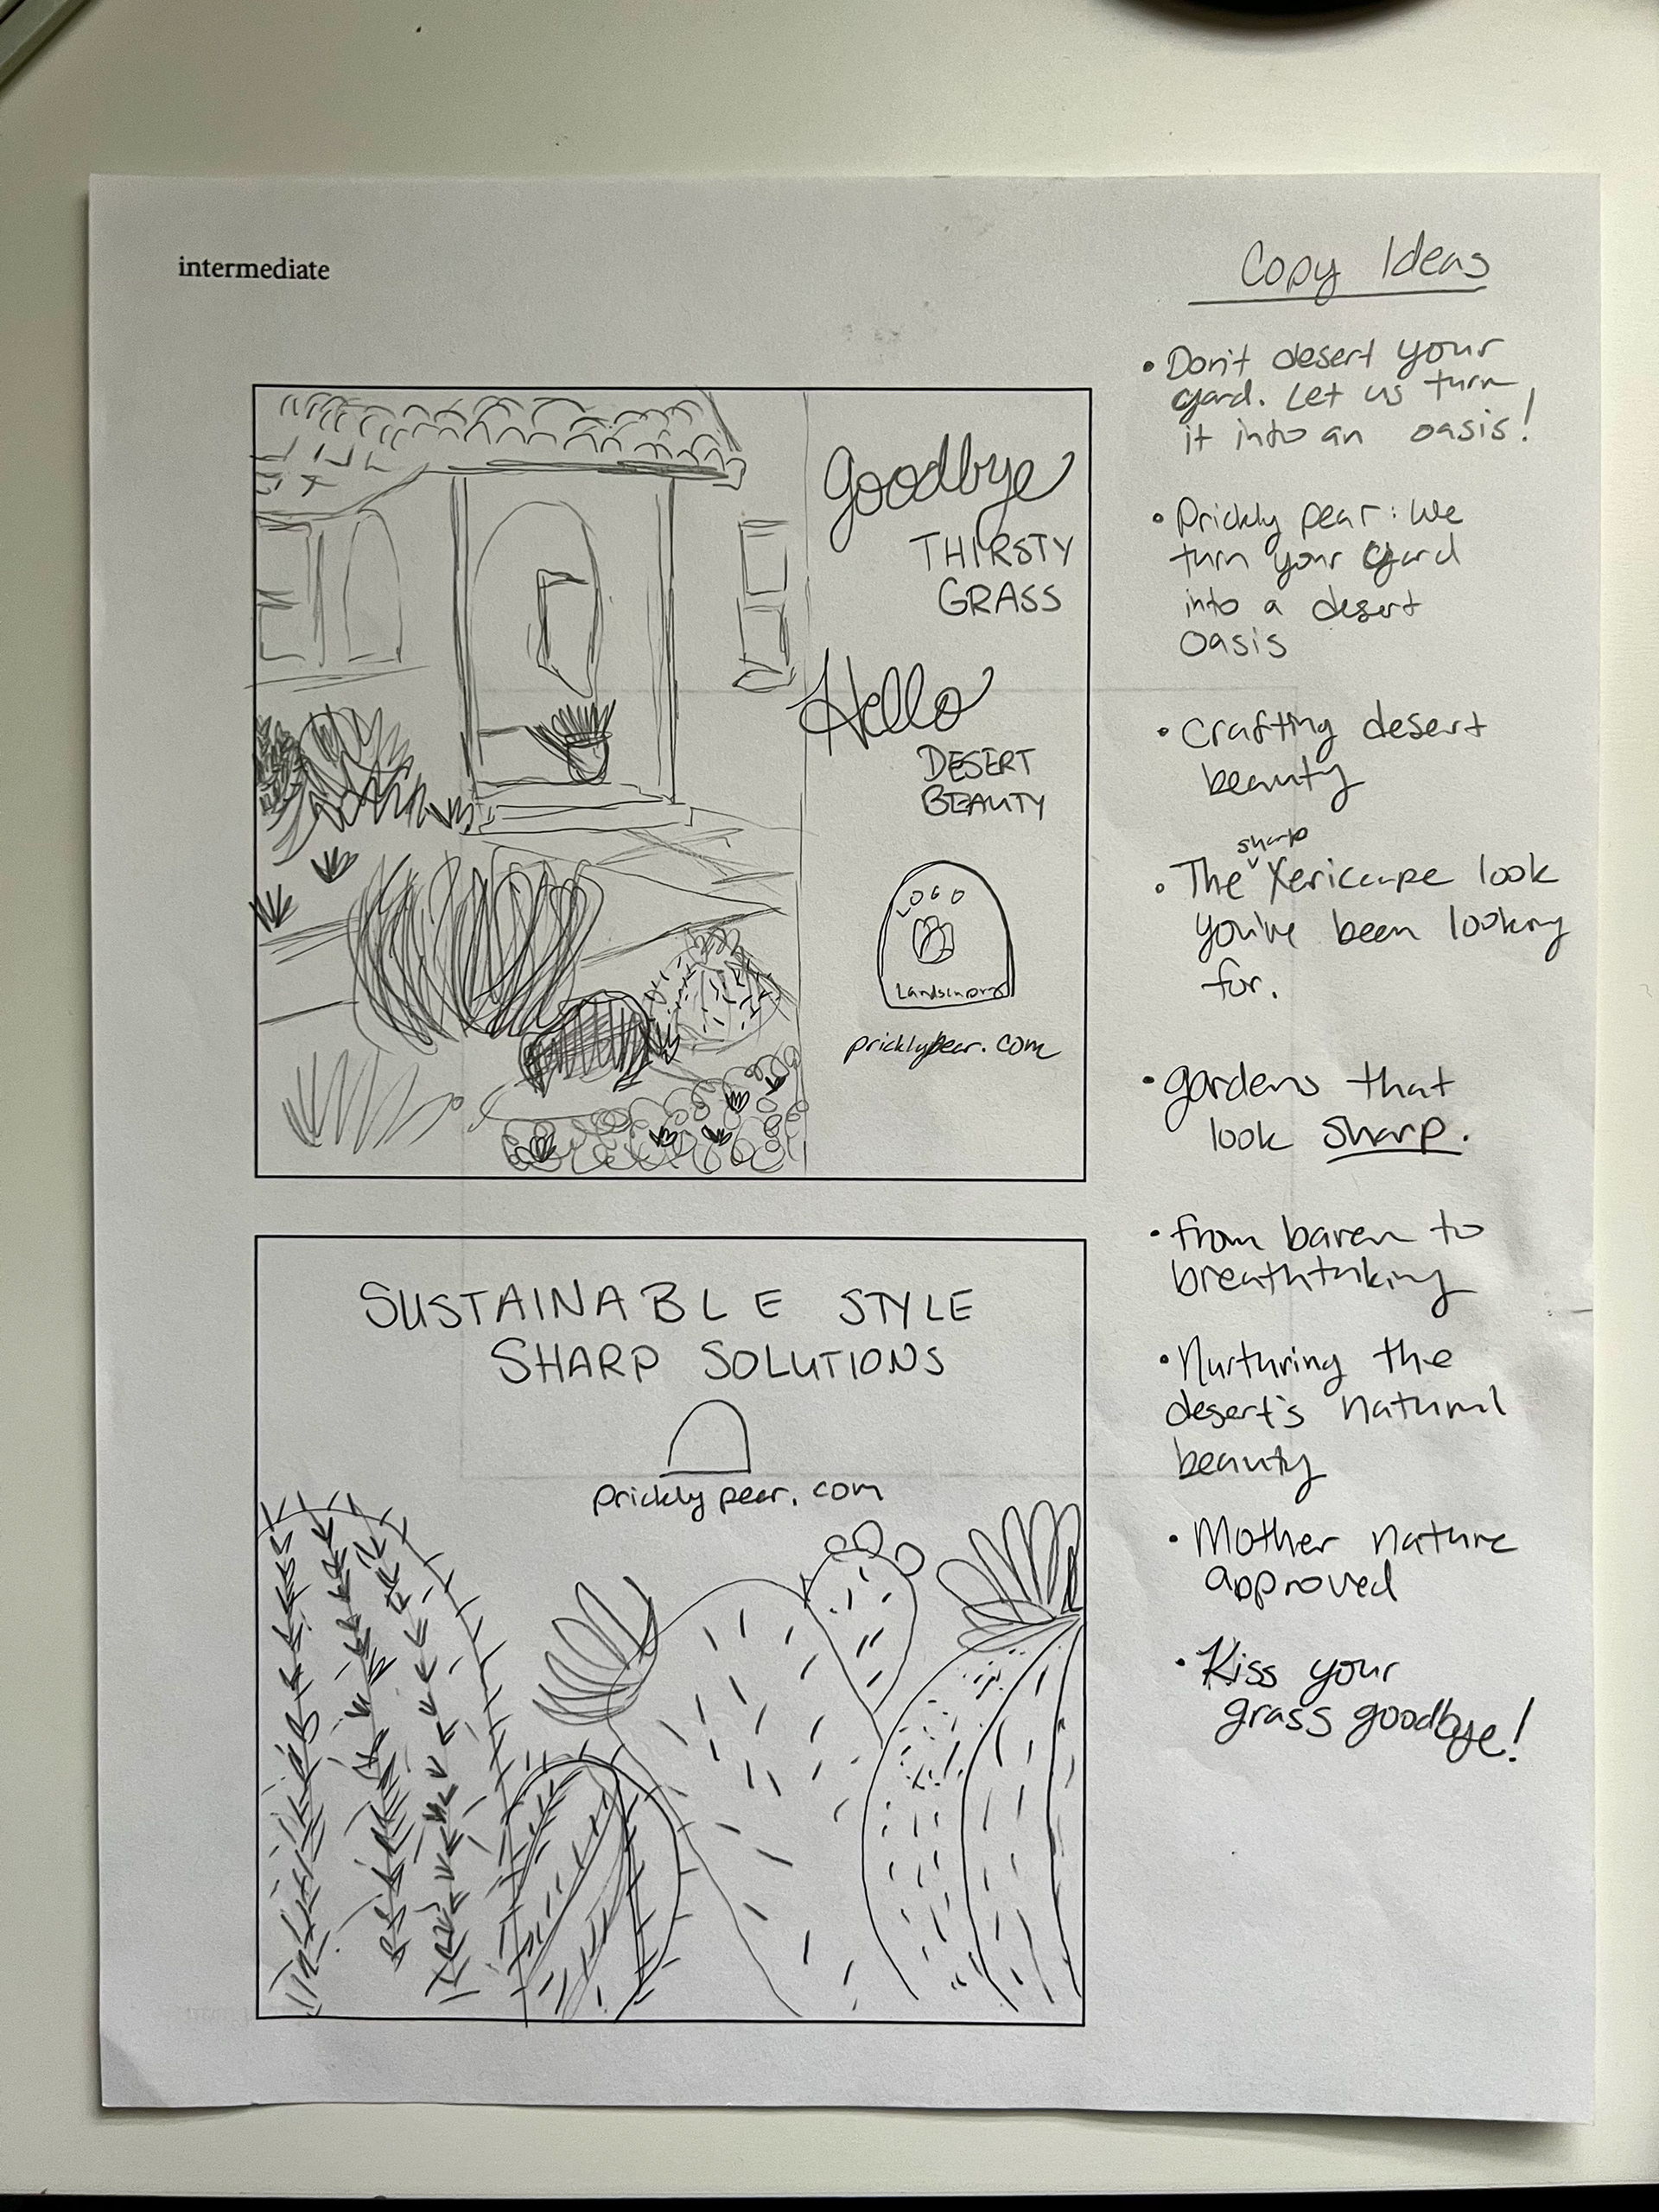 intermediate
Copy Ideas
• Don't desert your
yard. Let us turn
it into an oasis!
• Prickly pear: We
turn your yard
into a desert
oasis
• Crafting desert
beauty
sharp
• The Xericcape look
you've been looking
for.
• gardens that
look sharp.
• from baren to
breathtaking
• Nurturing the
desert's natural
beauty
• Mother nature
approved
• Kiss your
grass goodbye!
Goodbye
THIRSTY
GRASS
Hello
DESERT
BEAUTY
LOGO
Landscaping
pricklypear.com
SUSTAINABLE STYLE
SHARP SOLUTIONS
pricklypear.com